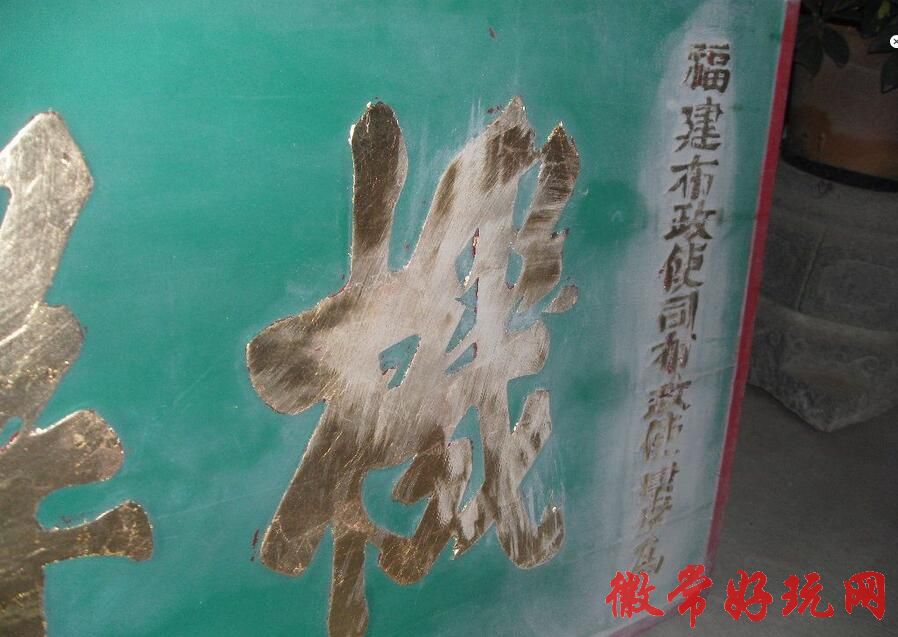 福建布政使司布政使為
徽常好玩网